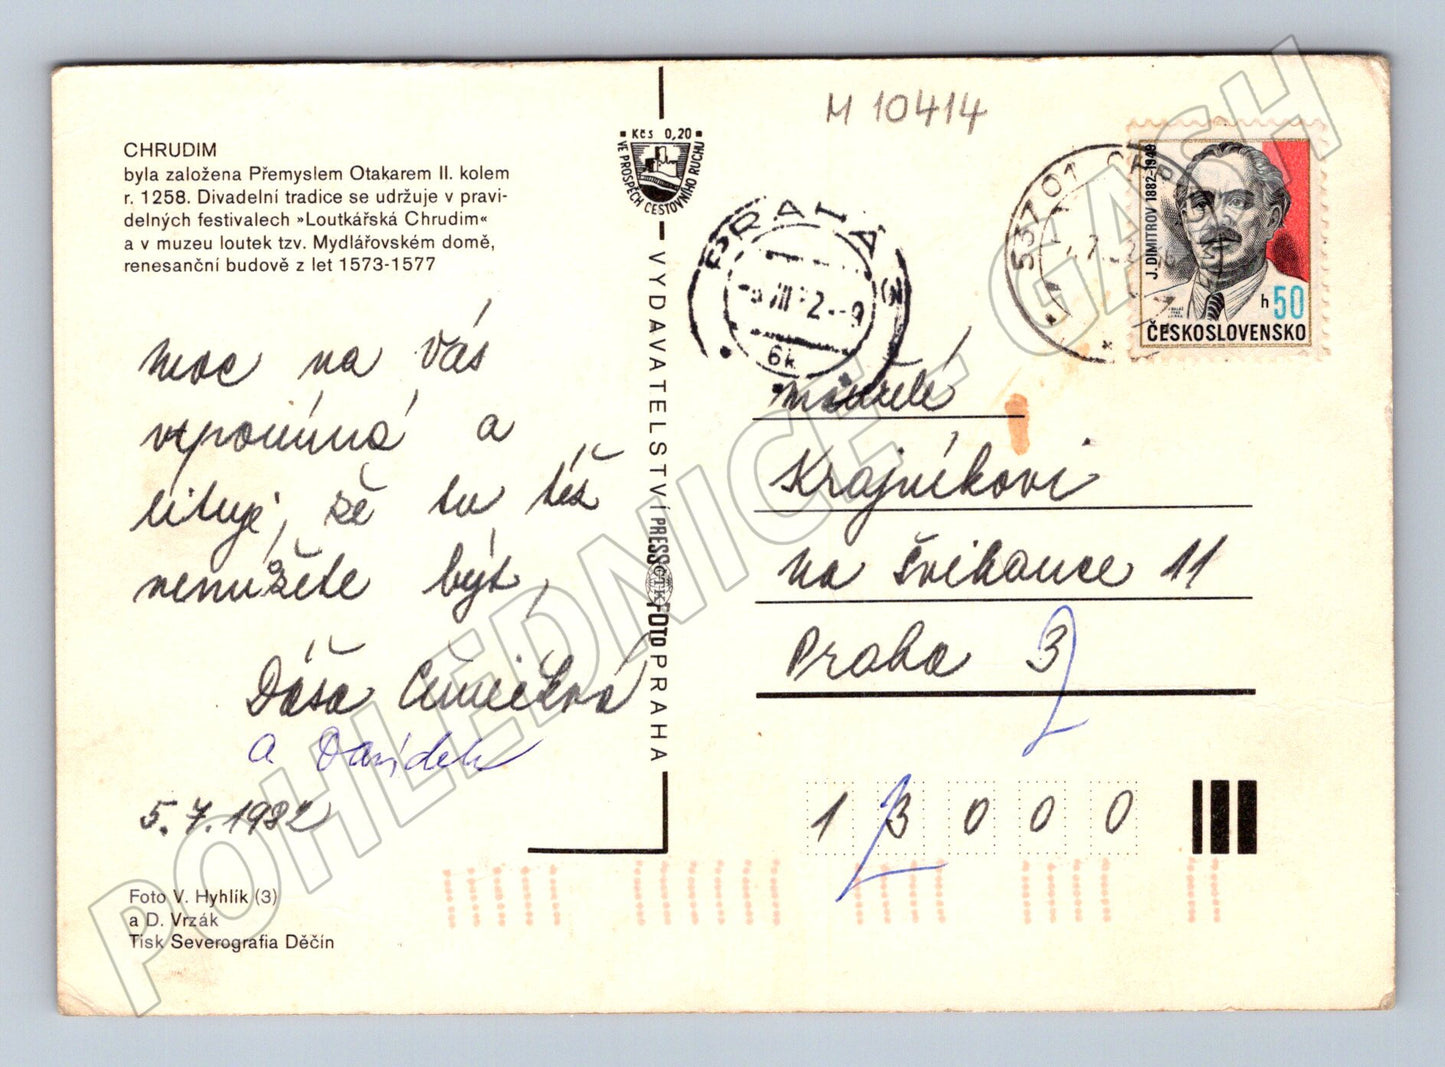 M 10414
CHRUDIM
byla založena Přemyslem Otakarem II. kolem
r. 1258. Divadelní tradice se udržuje v pravi-
delných festivalech »Loutkářská Chrudim«
a v muzeu loutek tzv. Mydlářovském domě,
renesanční budově z let 1573-1577
moc na Vás
vzpomíná a
lituji, že tu též
nemůžete být,
Dáša
a Davídek
5.7.1982
Foto V. Hyhlík (3)
a D. Vrzák
Tisk Severografia Děčín
Kčs 0,20
VE PROSPĚCH CESTOVNÍHO RUCHU
VYDAVATELSTVÍ PRESSFOTO PRAHA
ČTK
PRAHA 3
6k
537 01
J. DIMITROV 1882-1949
h 50
ČESKOSLOVENSKO
manželé
Krajníkovi
na Švihance 11
Praha 3
2
1 3 0 0 0
2
POHLEDNICE - GASH